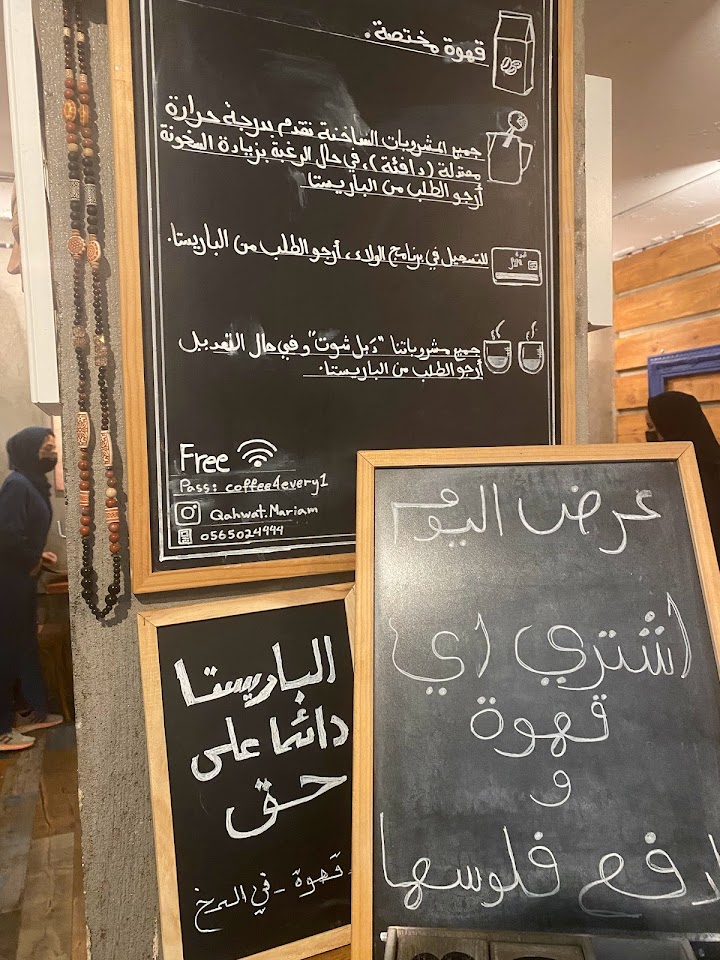 قهوة مختصة.
جميع المشروبات الساخنة تقدم بدرجة حرارة
معتدلة (دافئة)، في حال الرغبة بزيادة السخونة
أرجو الطلب من الباريستا
للتسجيل في برنامج الولاء، أرجو الطلب من الباريستا.
جميع مشروباتنا "دَبل شوت" و في حال التعديل
أرجو الطلب من الباريستا.
Free
Pass: coffee4every1
Qahwat.Mariam
0565024444
الباريستا
دائما على
حق
قَهوَة - في
عرض اليوم
اشتري اي
قهوة
و
ادفع فلوسها